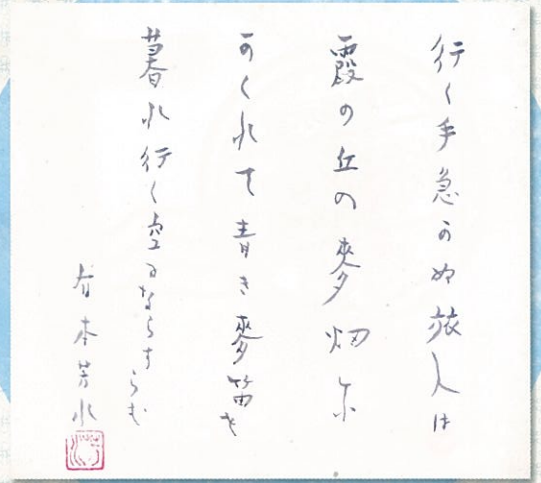 行く手急かぬ旅人は
霞の丘の麥畑に
かくれて青き麥笛を
暮れ行く空にならすらむ
有本芳水